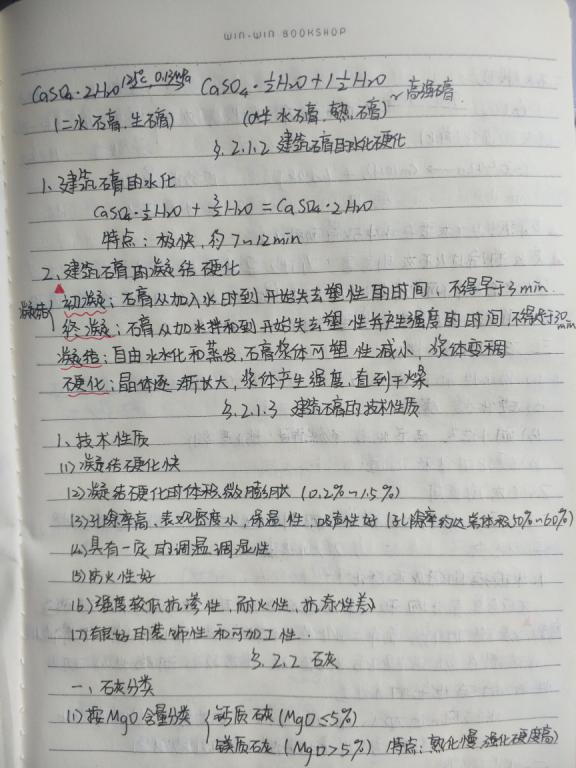 WIN-WIN BOOKSHOP
CaSO₄·2H₂O 125℃, 0.13MPa CaSO₄·½H₂O+1½H₂O
(二水石膏, 生石膏) (α半水石膏, 熟石膏) ~高强石膏
§.2.1.2 建筑石膏的水化硬化
1、建筑石膏的水化
CaSO₄·½H₂O + 3/2H₂O = CaSO₄·2H₂O
特点：极快, 约7~12min
2、建筑石膏的凝结硬化
凝结 { 初凝：石膏从加入水时到开始失去塑性的时间, 不得早于3min
终凝：石膏从加水拌和到开始失去塑性并产生强度的时间, 不得迟于30min
凝结：自由水水化和蒸发, 石膏浆体可塑性减小, 浆体变稠
硬化：晶体逐渐长大, 浆体产生强度, 直到干燥
§.2.1.3 建筑石膏的技术性质
1、技术性质
(1)凝结硬化快
(2)凝结硬化时体积微膨胀 (0.2%~1.5%)
(3)孔隙率高, 表观密度小, 保温性, 吸声性好 (孔隙率约占总体积50%~60%)
(4)具有一定的调温调湿性
(5)防火性好
(6)强度较低 抗渗性, 耐水性, 抗冻性差
(7)有良好的装饰性和可加工性.
§.2.2 石灰
一、石灰分类
(1)按MgO含量分类 { 钙质石灰 (MgO≤5%)
镁质石灰 (MgO>5%) (特点：熟化慢, 强化硬度高)